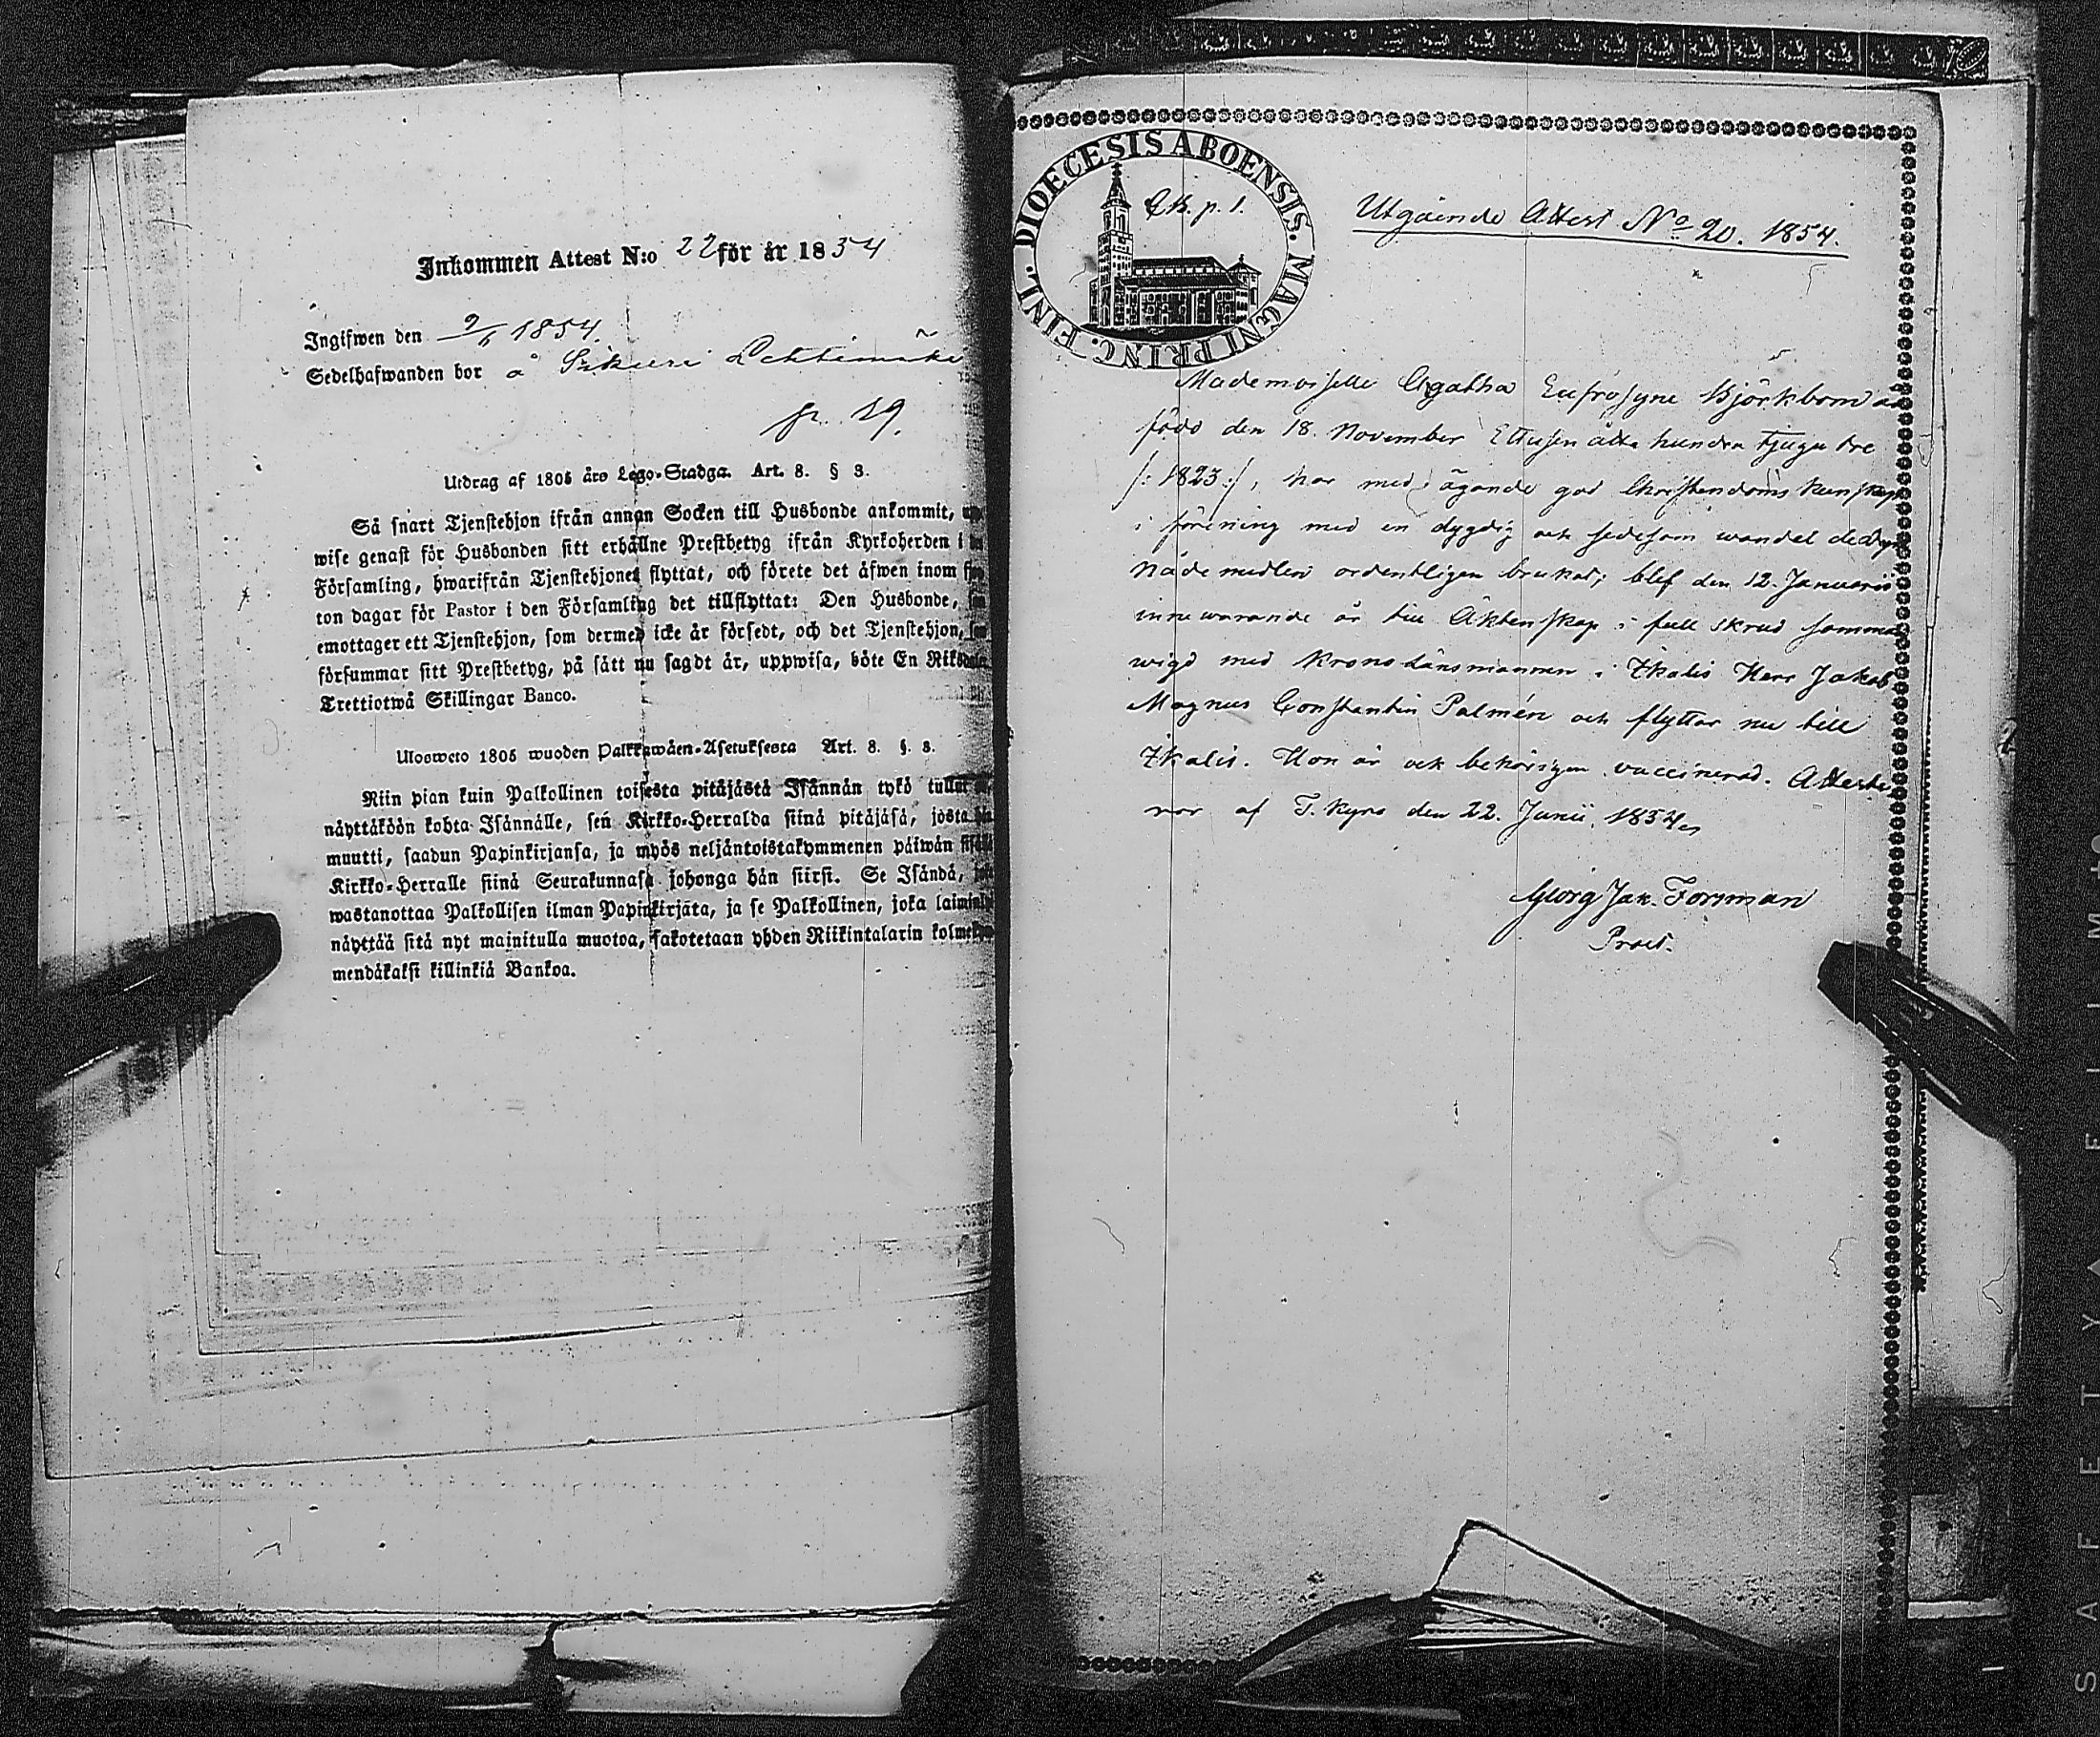 Inkommen Attest N:o 22 för år 1854
Ingifwen den 9/6 1854.
Sedelhafwanden bor å Sikuri Lehtimäki
p. 19.
Utdrag af 1805 års Lego-Stadga. Art. 8. § 3.
Så snart Tjenstehjon ifrån annan Socken till Husbonde ankommit,
wise genast för Husbonden sitt erhållne Prestbetyg ifrån Kyrkoherden i
Församling, hwarifrån Tjenstehjonet flyttat, och förete det äfwen inom
ton dagar för Pastor i den Församling det tillflyttat: Den Husbonde,
emottager ett Tjenstehjon, som dermed icke är försedt, och det Tjenstehjon,
försummar sitt Prestbetyg, på sätt nu sagdt är, uppwisa, böte En Riksdaler
Trettiotwå Skillingar Banco.
Ulosweto 1805 wuoden Palkkawäen-Asetuksesta Art. 8. §. 3.
Niin pian kuin Palkollinen toisesta pitäjästä Isännän tykö tullut
näyttäköön kohta Isännälle, sen Kirkko-Herralda siinä pitäjäsä, josta hän
muutti, saadun Papinkirjansa, ja myös neljäntoistakymmenen päiwän
Kirkko-Herralle siinä Seurakunnasa johonga hän siirsi. Se Isändä,
wastanottaa Palkollisen ilman Papinkirjata, ja se Palkollinen, joka
näyttää sitä nyt mainitulla muotoa, sakotetaan yhden Riikintalarin
mendäkaksi killinkiä Bankoa.
DIOECESIS ABOENSIS. MAGNI PRINC. FINL.
p. 1.
Utgående Attest No 20. 1854.
Mademoiselle Agatha Eufrosyne Björkbom är
född den 18. November Ettusen åtta hundra tjugu tre
/: 1823 :/, har med ägande god Christendoms kunskap
i förening med en dygdig och sedesam wandel
Nådemedlen ordentligen brukat; blef den 12. Januarii
innewarande år till Äktenskap i full skrud samman
wigd med Kronolänsmannen i Ikalis Herr Jakob
Magnus Constantin Palmén och flyttar nu till
Ikalis. Hon är ock behörigen vaccinerad. Atteste
rar af T. Kyro den 22. Junii 1854
Georg Jak. Forsman
Prost.